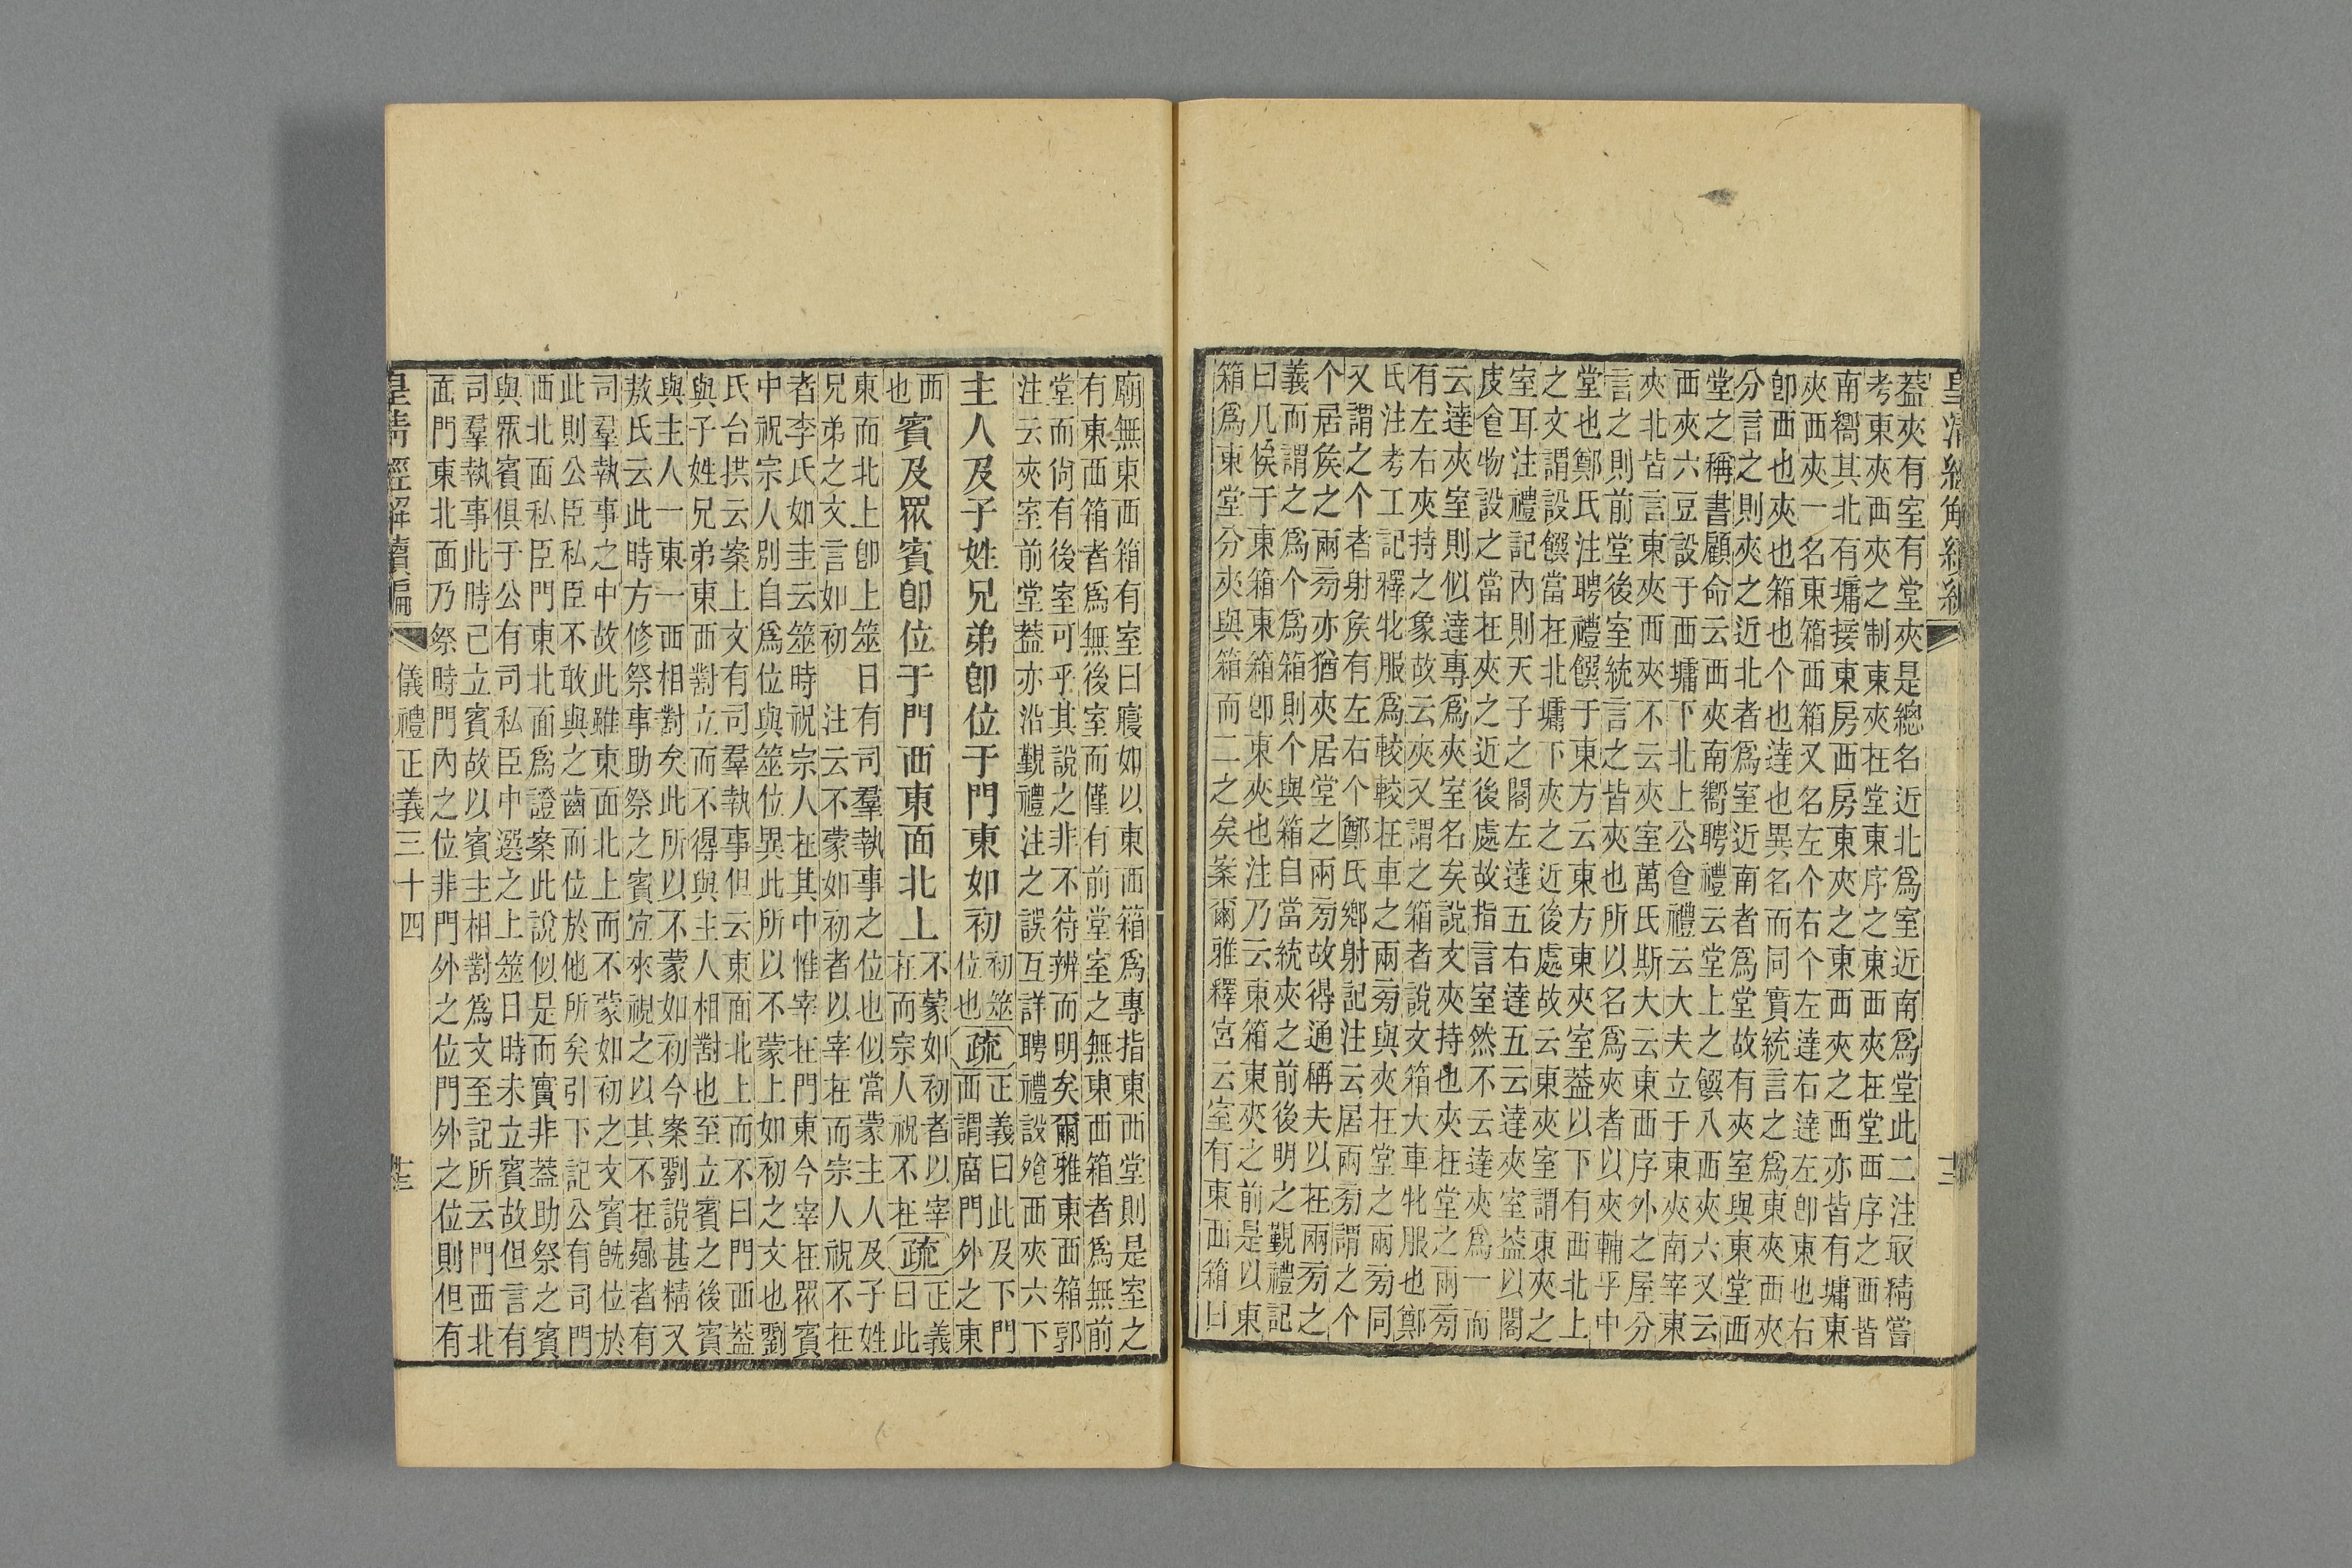 皇清經解續編
葢夾有室有堂夾是總名近北爲室近南爲堂此二注取精嘗
考東夾西夾之制東夾在堂東序之東西夾在堂西序之西皆
南嚮其北有墉接東房西房東夾之東西夾之西亦皆有墉東
夾西夾一名東箱西箱又名左个右个左達右達左卽東也右
卽西也夾也箱也个也達也異名而同實統言之爲東夾西夾
分言之則夾之近北者爲室近南者爲堂故有夾室與東堂西
堂之稱書顧命云西夾南嚮聘禮云堂上之饌八西夾六又云
西夾六豆設于西墉下北上公食禮云大夫立于東夾南宰東
夾北皆言東夾西夾不云夾室萬氏斯大云東西序外之屋分
言之則前堂後室統言之皆夾也所以名爲夾者以夾輔乎中
堂也鄭氏注聘禮饌于東方云東方東夾室葢以下有西北上
之文謂設饌當在北墉下夾之近後處故云東夾室謂東夾之
室耳注禮記內則天子之閣左達五右達五云達夾室葢以閣
庋食物設之當在夾之近後處故指言室然不云達夾爲一而
云達夾室則似達專爲夾室名矣說文夾持也夾在堂之兩旁
有左右夾持之象故云夾又謂之箱者說文箱大車牝服也鄭
氏注考工記釋牝服爲較較在車之兩旁與夾在堂之兩旁同
又謂之个者射矦有左右个鄭氏鄉射記注云居兩旁謂之个
个居矦之兩旁亦猶夾居堂之兩旁故得通稱夫以在兩旁之
義而謂之爲个爲箱則个與箱自當統夾之前後明之覲禮記
曰几俟于東箱東箱卽東夾也注乃云東箱東夾之前是以東
箱爲東堂分夾與箱而二之矣案爾雅釋宮云室有東西箱曰
廟無東西箱有室曰寢如以東西箱爲專指東西堂則是室之
有東西箱者爲無後室而僅有前堂室之無東西箱者爲無前
堂而尙有後室可乎其說之非不待辨而明矣爾雅東西箱郭
注云夾室前堂葢亦沿覲禮注之誤互詳聘禮設飱西夾六下
主人及子姓兄弟卽位于門東如初初筮位也疏正義曰此及下門西謂廟門外之東
西也賓及眾賓卽位于門西東面北上不蒙如初者以宰在而宗人祝不在疏正義曰此
東面北上卽上筮日有司羣執事之位也似當蒙主人及子姓
兄弟之文言如初注云不蒙如初者以宰在而宗人祝不在
者李氏如圭云筮時祝宗人在其中惟宰在門東今宰在眾賓
中祝宗人別自爲位與筮位異此所以不蒙上如初之文也劉
氏台拱云案上文有司羣執事但云東面北上而不曰門西葢
與子姓兄弟東西對立而不得與主人相對也至立賓之後賓
與主人一東一西相對矣此所以不蒙如初今案劉說甚精又
敖氏云此時方修祭事助祭之賓宜來視之以其不在㬥者有
司羣執事之中故此雖東面北上而不蒙如初之文賓旣位於
此則公臣私臣不敢與之齒而位於他所矣引下記公有司門
西北面私臣門東北面爲證案此說似是而實非葢助祭之賓
與眾賓俱于公有司私臣中選之上筮日時未立賓故但言有
司羣執事此時已立賓故以賓主相對爲文至記所云門西北
面門東北面乃祭時門內之位非門外之位門外之位則但有
皇清經解續編
儀禮正義三十四
十三